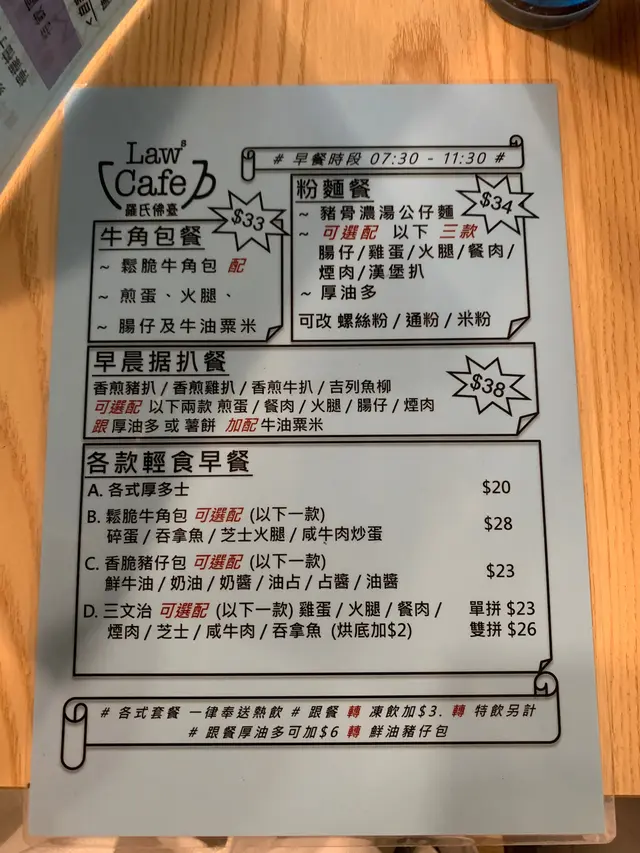 Law's
Cafe
羅氏佛臺
# 早餐時段 07:30 - 11:30 #
牛角包餐
$33
~ 鬆脆牛角包 配
~ 煎蛋、火腿、
~ 腸仔及牛油粟米
粉麵餐
$34
~ 豬骨濃湯公仔麵
~ 可選配 以下 三款
腸仔/雞蛋/火腿/餐肉/
煙肉/漢堡扒
~ 厚油多
可改 螺絲粉 / 通粉 / 米粉
早晨据扒餐
$38
香煎豬扒 / 香煎雞扒 / 香煎牛扒 / 吉列魚柳
可選配 以下兩款 煎蛋 / 餐肉 / 火腿 / 腸仔 / 煙肉
跟 厚油多 或 薯餅 加配 牛油粟米
各款輕食早餐
A. 各式厚多士 $20
B. 鬆脆牛角包 可選配 (以下一款)
碎蛋 / 吞拿魚 / 芝士火腿 / 咸牛肉炒蛋 $28
C. 香脆豬仔包 可選配 (以下一款)
鮮牛油 / 奶油 / 奶醬 / 油占 / 占醬 / 油醬 $23
D. 三文治 可選配 (以下一款) 雞蛋 / 火腿 / 餐肉 / 單拼 $23
煙肉 / 芝士 / 咸牛肉 / 吞拿魚 (烘底加$2) 雙拼 $26
# 各式套餐 一律奉送熱飲 # 跟餐 轉 凍飲加$3. 轉 特飲另計
# 跟餐厚油多可加$6 轉 鮮油豬仔包